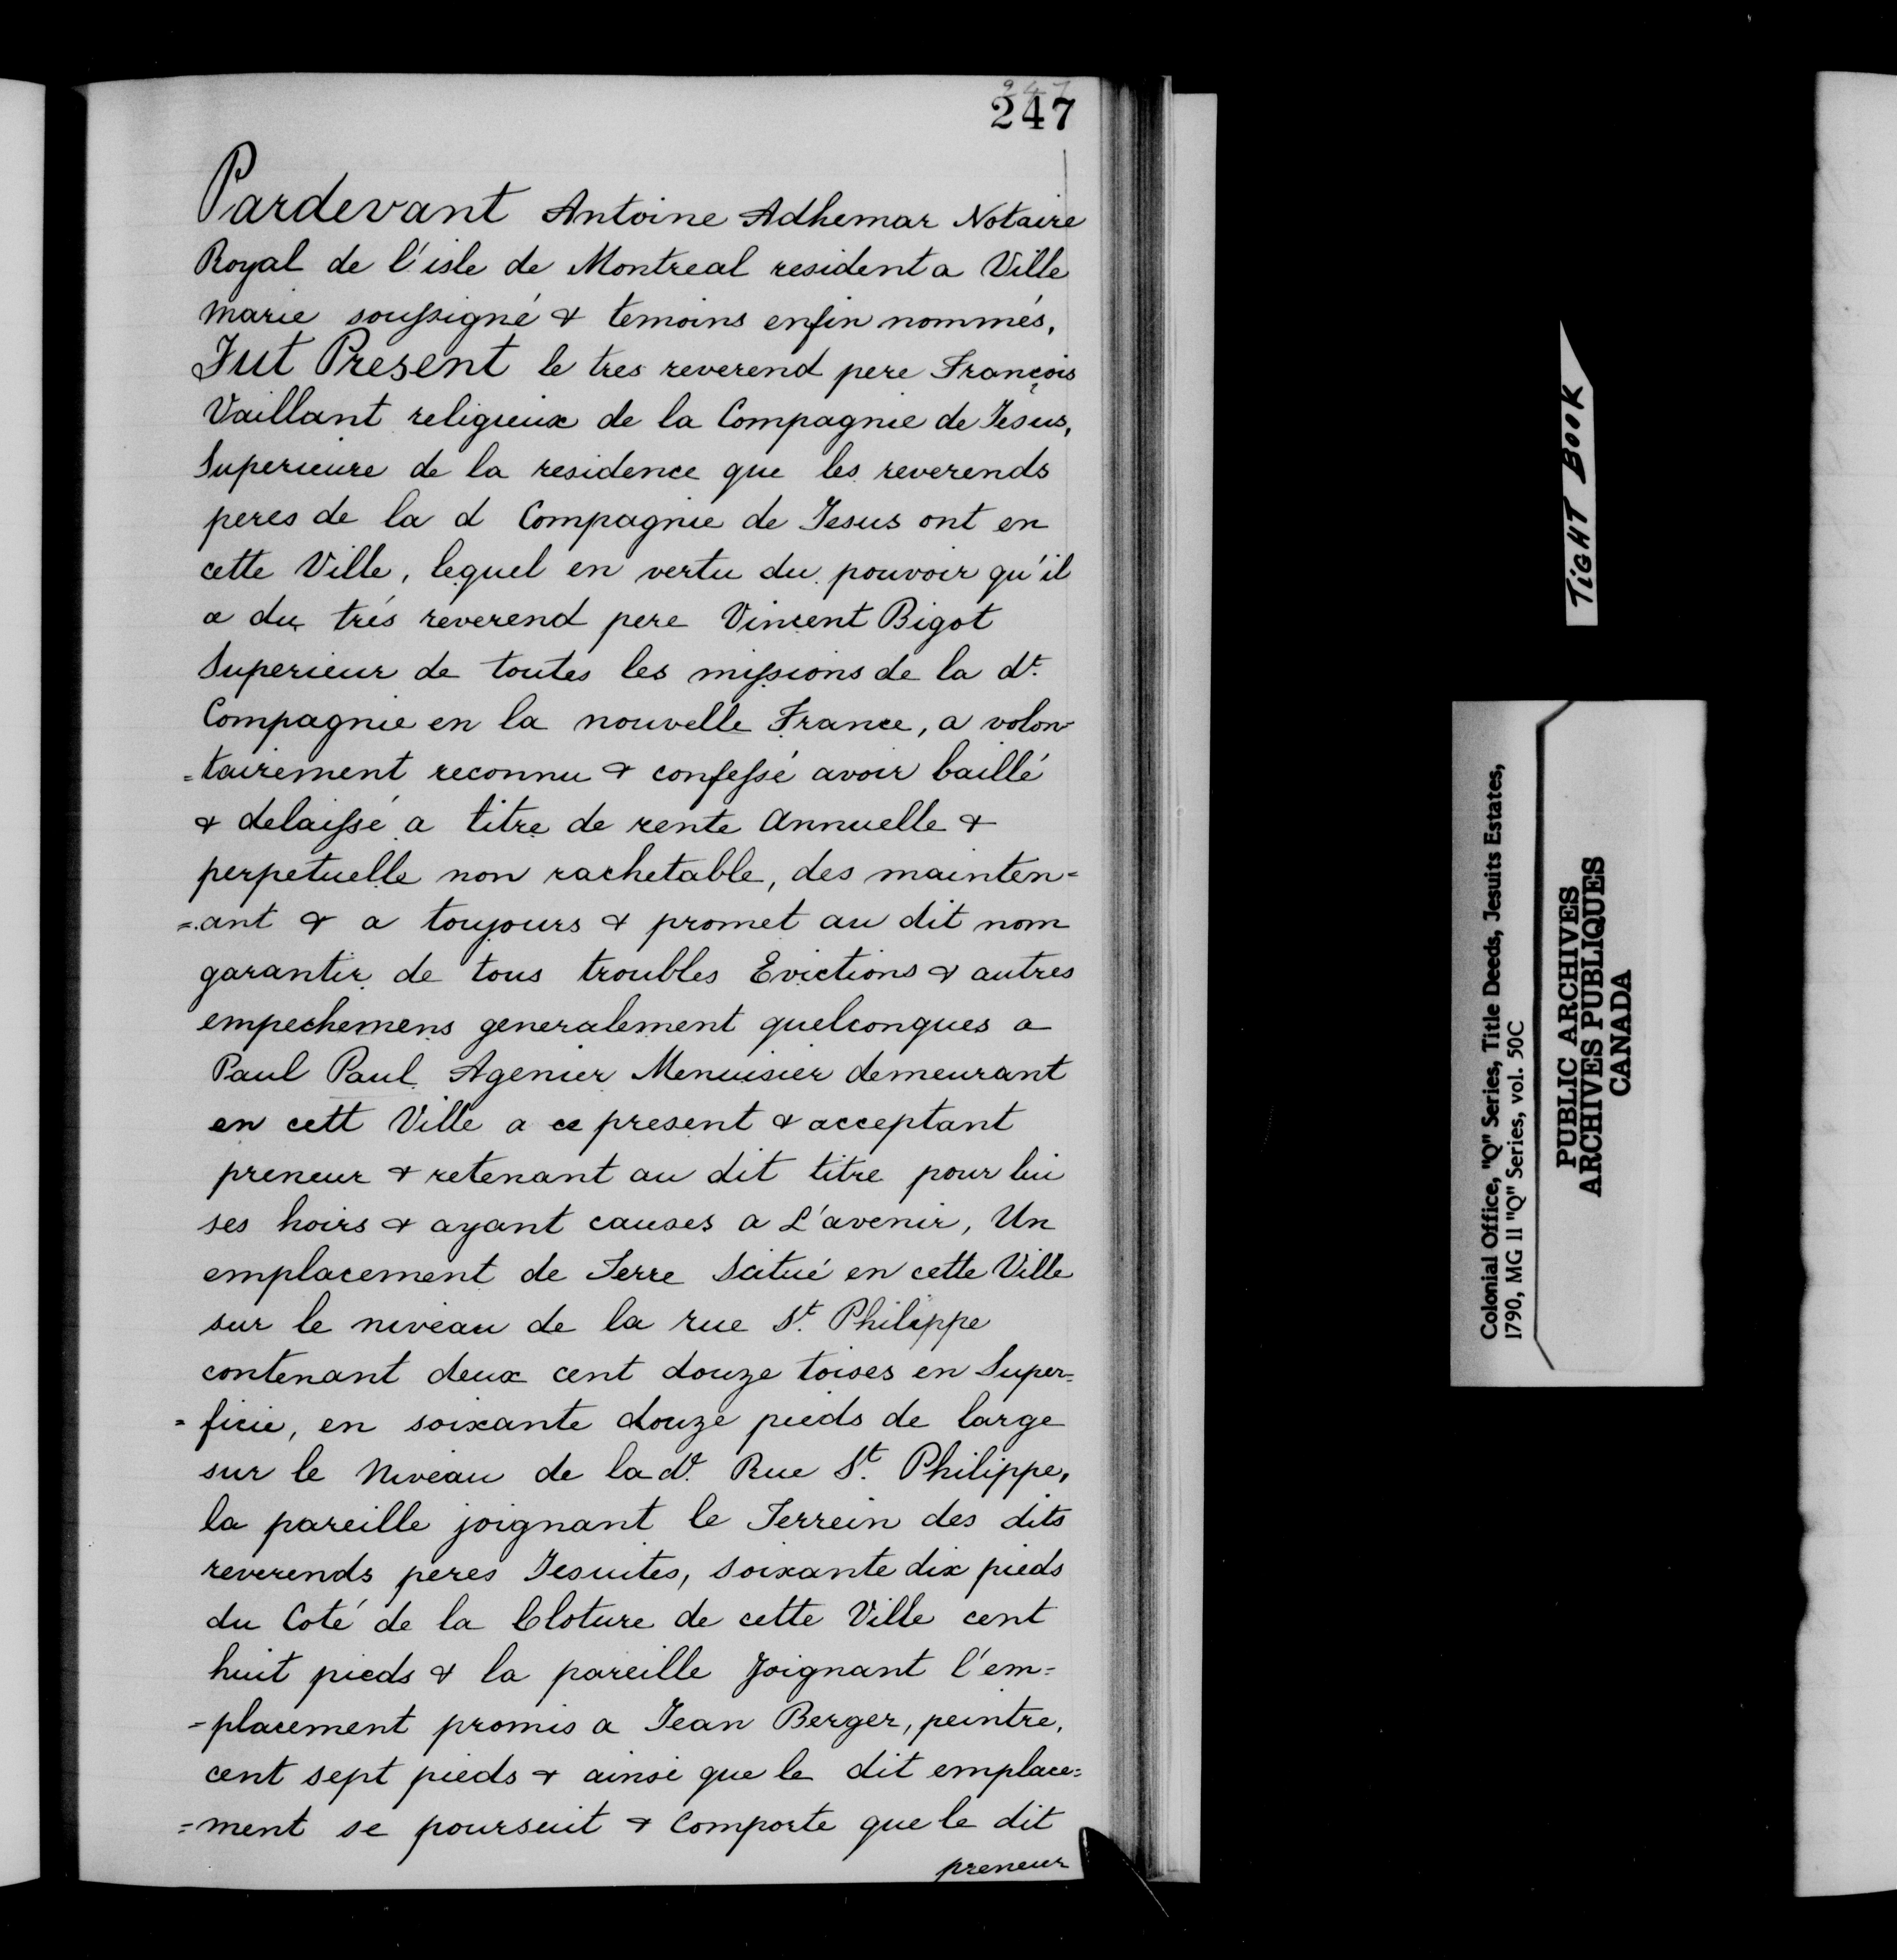 247
247
Pardevant Antoine Adhemar Notaire
Royal de l'isle de Montreal resident a Ville
marie soussigné & temoins enfin nommés,
Fut Present le tres reverend pere François
Vaillant religieux de la Compagnie de Jesus,
Superieure de la residence que les reverends
peres de la d Compagnie de Jesus ont en
cette Ville, lequel en vertu du pouvoir qu'il
a du trés reverend pere Vincent Bigot
Superieur de toutes les missions de la dt.
Compagnie en la nouvelle France, a volon
=tairement reconnu & confessé avoir baillé
& delaissé a titre de rente Annuelle &
perpetuelle non rachetable, des mainten=
=ant & a toujours & promet au dit nom
garantir de tous troubles Evictions & autres
empechemens generalement quelconques a
Paul Paul Agenier Menuisier demeurant
en cett Ville a ce present & acceptant
preneur & retenant au dit titre pour lui
ses hoirs & ayant causes a L'avenir, Un
emplacement de Terre Scitué en cette Ville
sur le niveau de la rue St. Philippe
contenant deux cent douze toises en Super=
=ficie, en soixante douze pieds de large
sur le Niveau de la dt. Rue St. Philippe,
la pareille joignant le Terrein des dits
reverends peres Jesuites, soixante dix pieds
du Coté de la Cloture de cette Ville cent
huit pieds & la pareille Joignant l'em=
=placement promis a Jean Berger, peintre,
cent sept pieds & ainsi que le dit emplace=
=ment se poursuit & Comporte que le dit
preneur
TIGHT BOOK
Colonial Office, "Q" Series, Title Deeds, Jesuits Estates,
1790, MG 11 "Q" Series, vol. 50C
PUBLIC ARCHIVES
ARCHIVES PUBLIQUES
CANADA